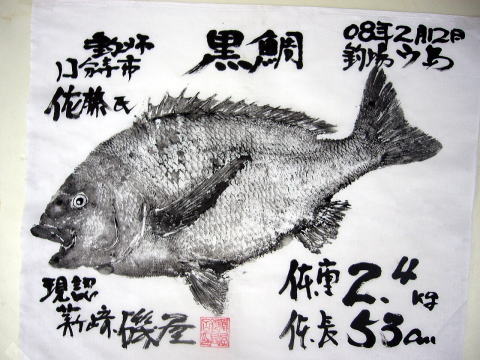 黒鯛
08年2月12日
釣場ウ島
釣師
佐藤氏
現認
磯屋
体重 2.4kg
体長 53cm